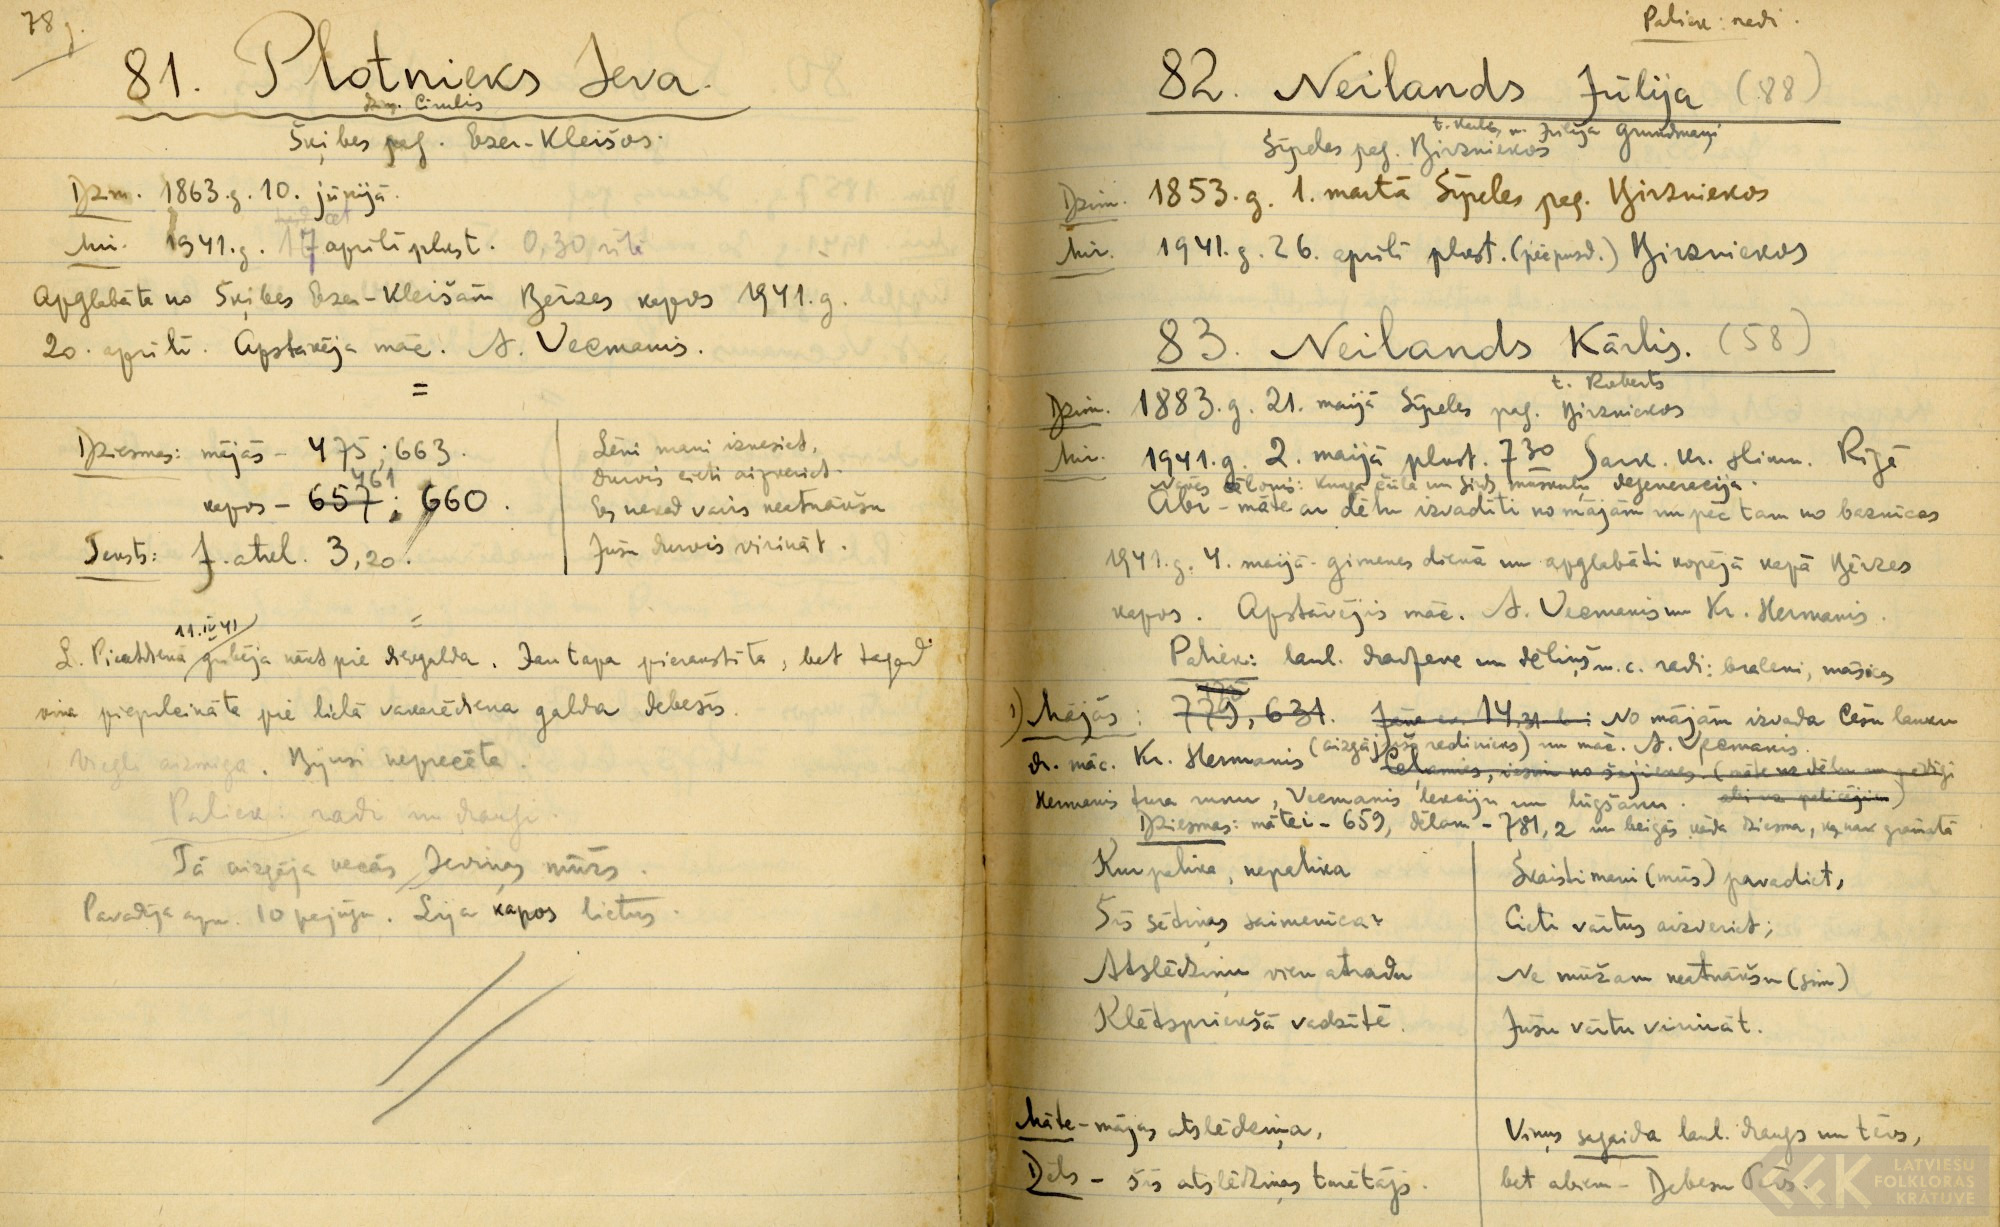 78
81. Plotnieks Ieva.
dzim. Cīrulis
Šķibes pag. Ezer-Kleišos.
Dzim. 1863.g. 10. jūnijā.
Mir. 1941.g. 17 aprīlī plkst. 0,30 rītā
Apglabāta no Šķibes Ezer-Kleišām Bērzes kapos 1941.g.
20. aprīlī. Apstāvēja māc. A. Vecmanis.
=
Dziesmas: mājās - 475; 663.
461
kapos - 657; 660.
Teksts: J. atkl. 3,20.
Lēni mani iznesiet,
durvis cieti aizveriet.
Es nekad vairs neatnākšu
Jūsu durvis virināt.
=
11.IV 41
L. Piektdienā gribēja nākt pie dievgalda. Jau tapa pierakstīta, bet tagad
viņa pieaicināta pie lielā vakarēdiena galda debesīs.
Viegli aizmiga. Bijusi neprecēta.
Paliek: radi un draugi.
Tā aizgāja vecās Ieviņas mūžs.
Pavadīja apm. 10 pajūgu. Lija kapos lietus.
Paliek: radi.
82. Neilands Jūlija (88)
t. Kārlis, m. Jūlija Grundmaņi
Sīpeles pag. Birzniekos
Dzim. 1853.g. 1. martā Sīpeles pag. Birzniekos
Mir. 1941.g. 26. aprīlī plkst. (pēcpusd.) Birzniekos
83. Neilands Kārlis. (58)
t. Roberts
Dzim. 1883.g. 21. maijā Sīpeles pag. Birzniekos
Mir. 1941.g. 2. maijā plkst. 7 30 Sark. Kr. slimn. Rīgā
Nāves cēlonis: kuņģa čūla un sirds muskuļu deģenerācija.
Abi - māte ar dēlu izvadīti no mājām un pēc tam no baznīcas
1941.g. 4. maijā - ģimenes dienā un apglabāti kopējā kapā Bērzes
kapos. Apstāvējis māc. A. Vecmanis un Kr. Hermanis.
Paliek: laul. draudzene un dēliņš m.c. radi: brāleni, māsicas
1) Mājās: 779, 631. 14,31 No mājām izvada Cēsu lauku
dr. māc. Kr. Hermanis (aizgājušā radinieks) un māc. A. Vecmanis.
Celamies, iesim no šejienes. (māte uz dēlu un pretēji
Hermanis tura runu, Vecmanis lekciju un lūgšanu.
Dziesmas: mātei - 659, dēlam - 781,2 un beigās kāda dziesma, kas nav grāmatā
Kur palika, nepalika
Šīs sētiņas saimeniece?
Atslēdziņu vien atradu
Klētspriekšā vadzītē.
Skaisti mani (mūs) pavadiet,
Cieti vārtus aizveriet;
Ne mūžam neatnākšu (sim)
Jūsu vārtu virināt.
Māte - mājas atslēdziņa,
Dēls - šīs atslēdziņas turētājs.
Viņus sagaida laul. draugs un tēvs,
bet abiem - Debesu Tēvs.
LATVIEŠU
FOLKLORAS
KRĀTUVE